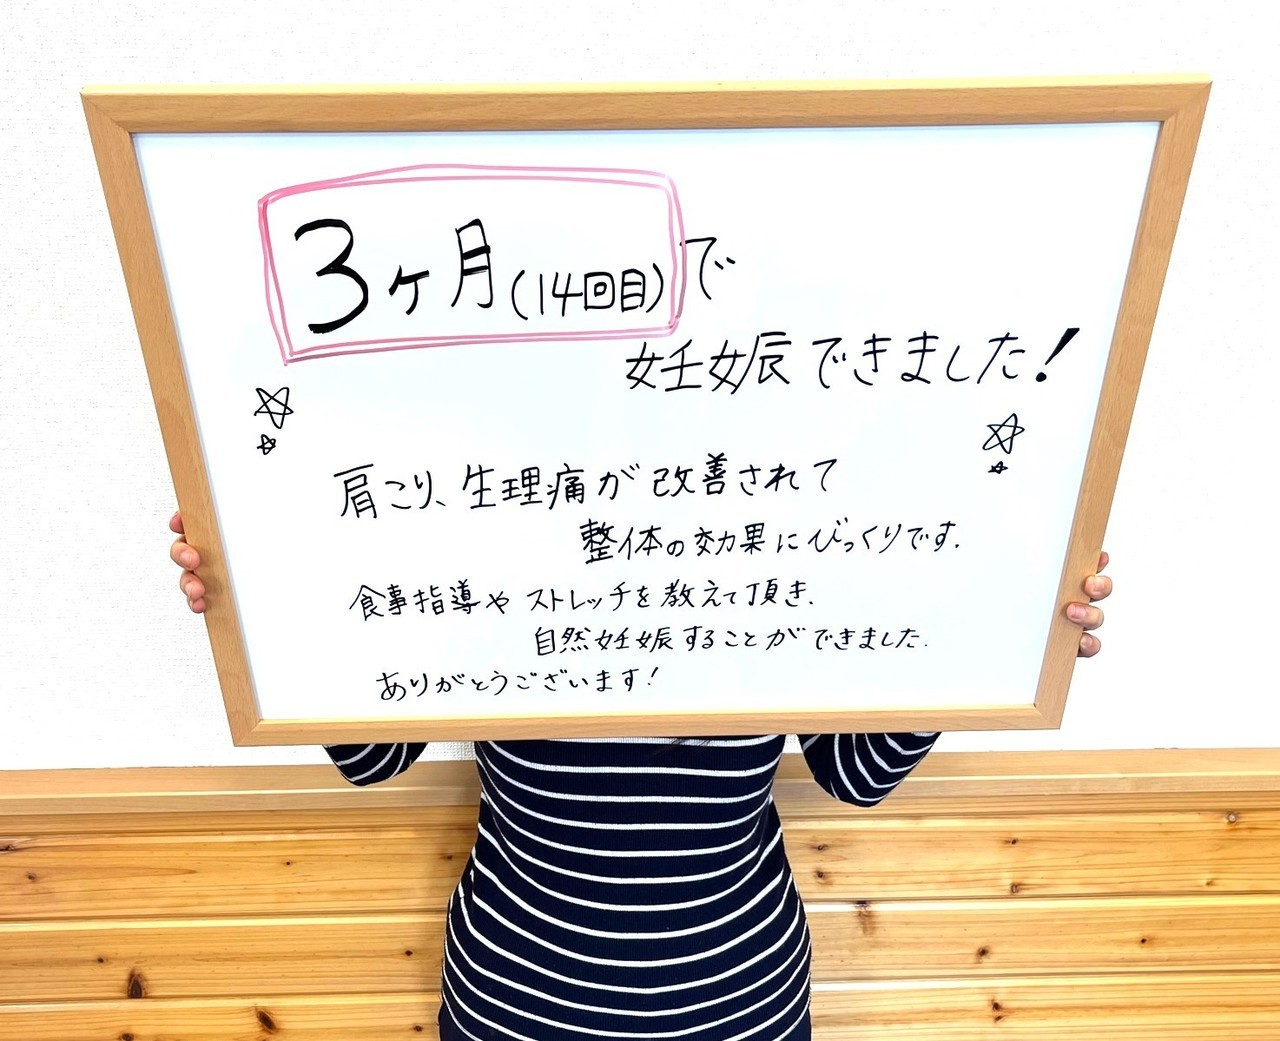 3ヶ月(14回目)で
妊娠できました!
肩こり、生理痛が改善されて
整体の効果にびっくりです.
食事指導や ストレッチを教えて頂き、
自然妊娠することができました.
ありがとうございます!